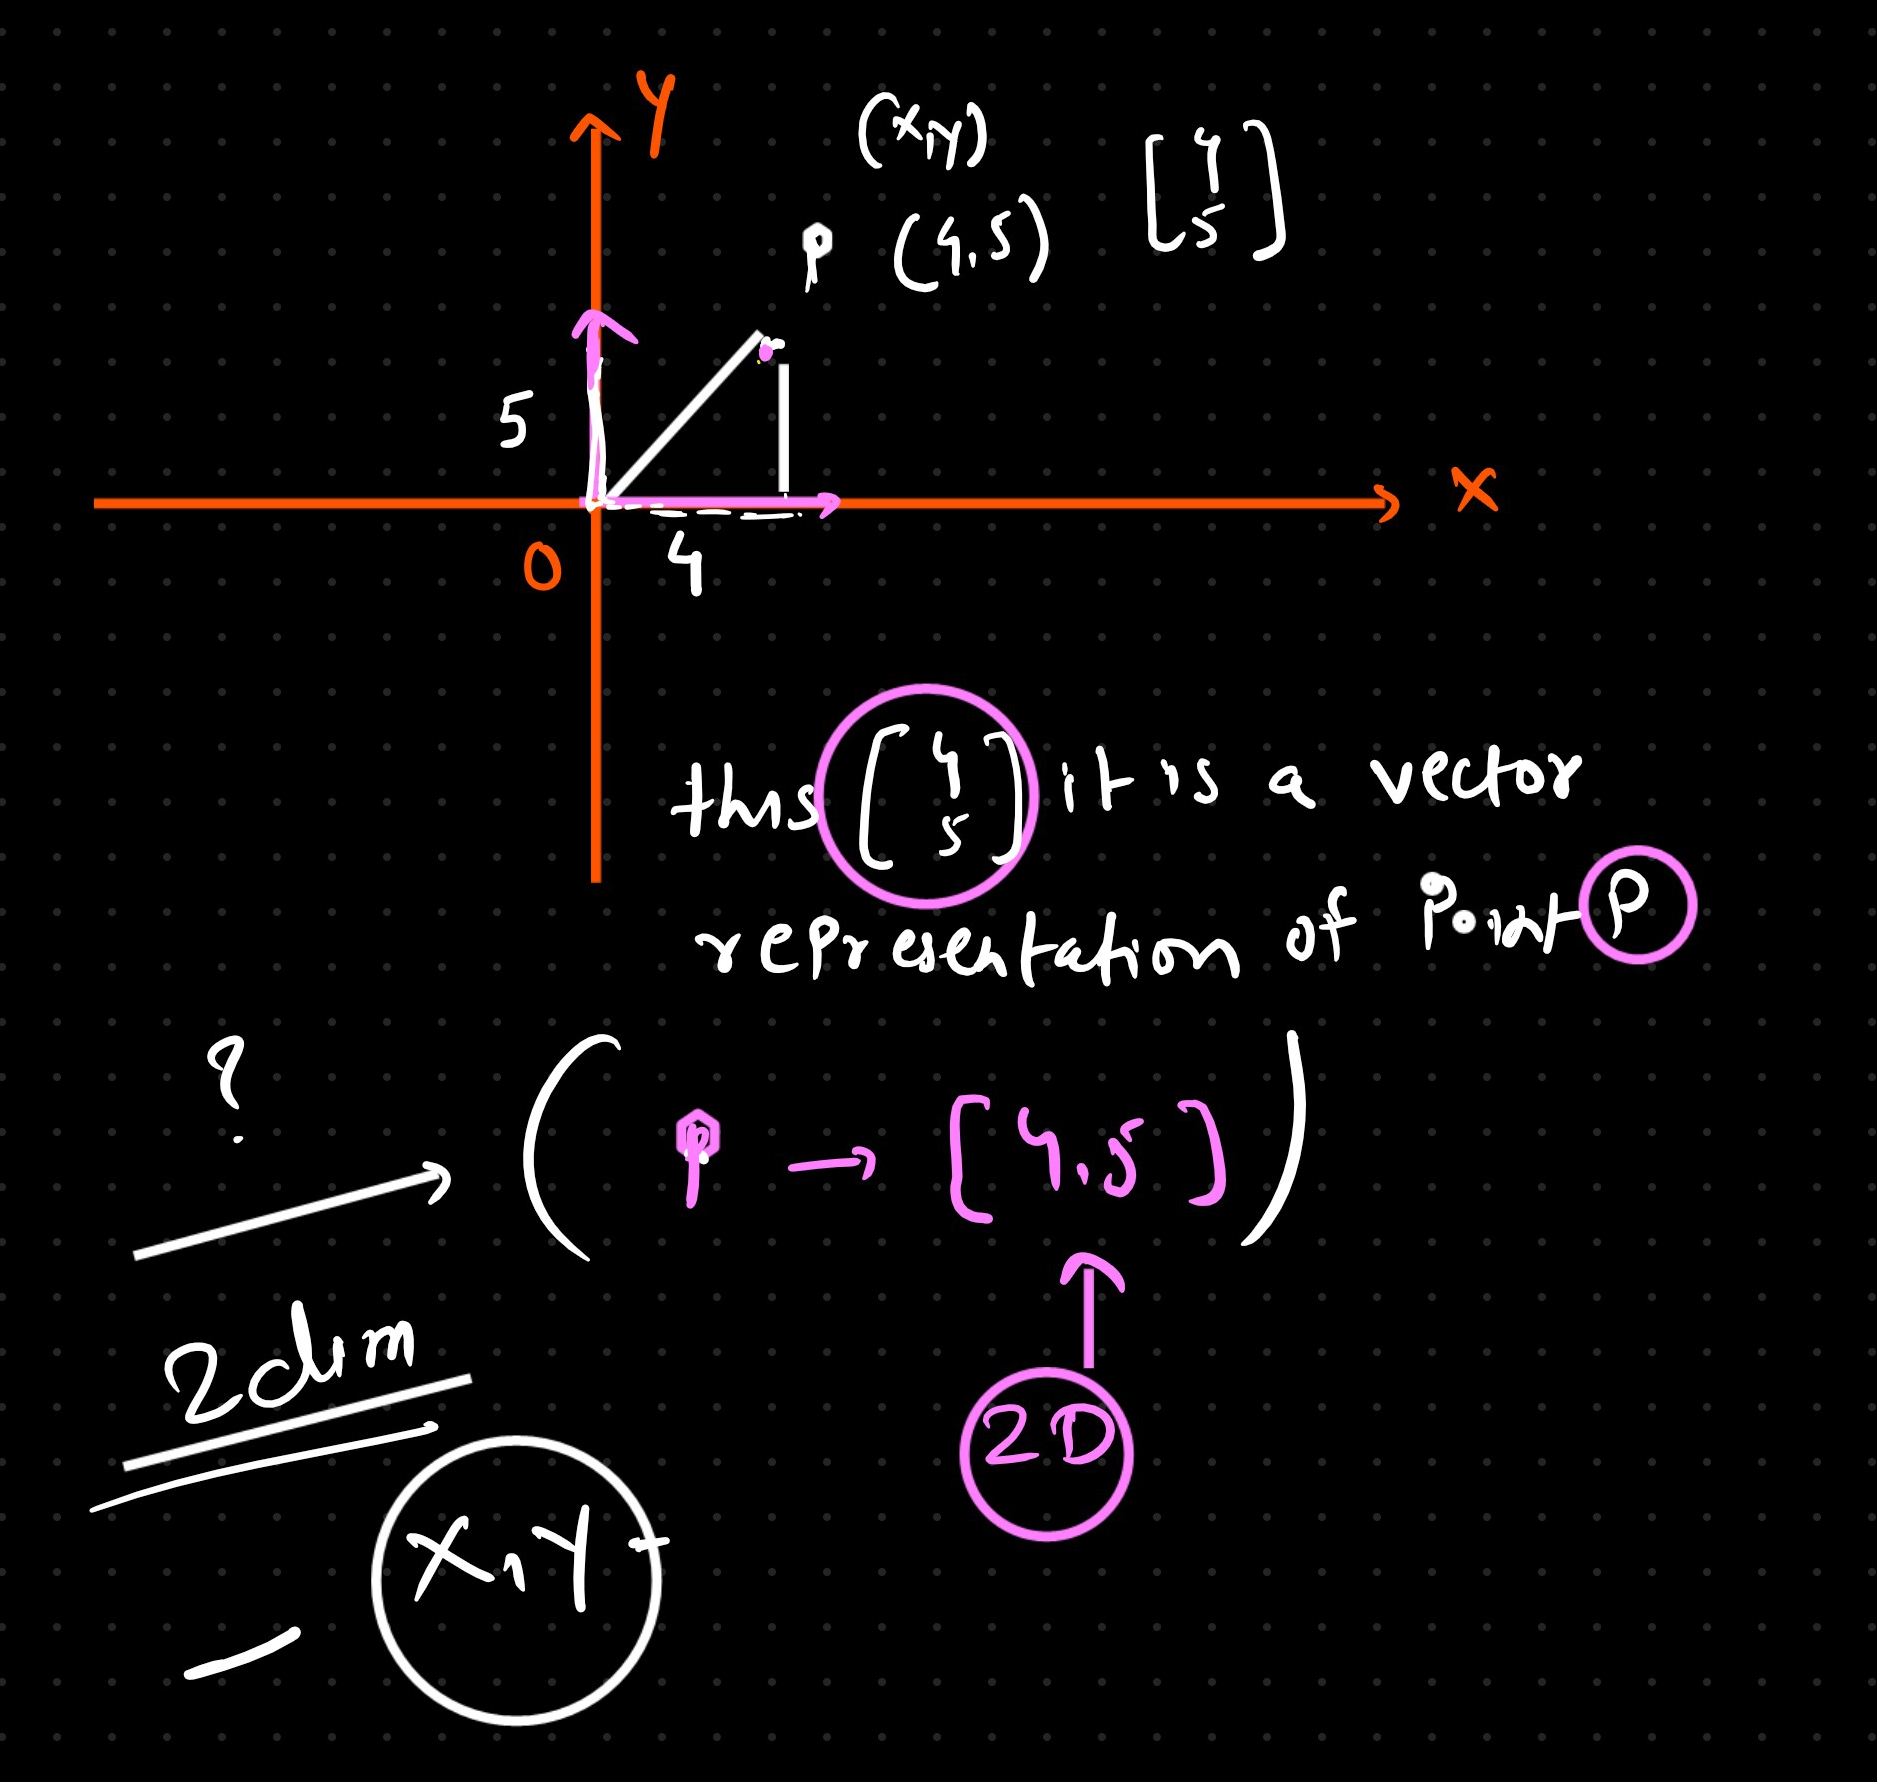 Y
(x,y)
P (4,5)
[4
5]
5
X
0
4
this [4
5] it is a vector
representation of Point P
?
(P → [4,5])
2dim
2D
X,Y